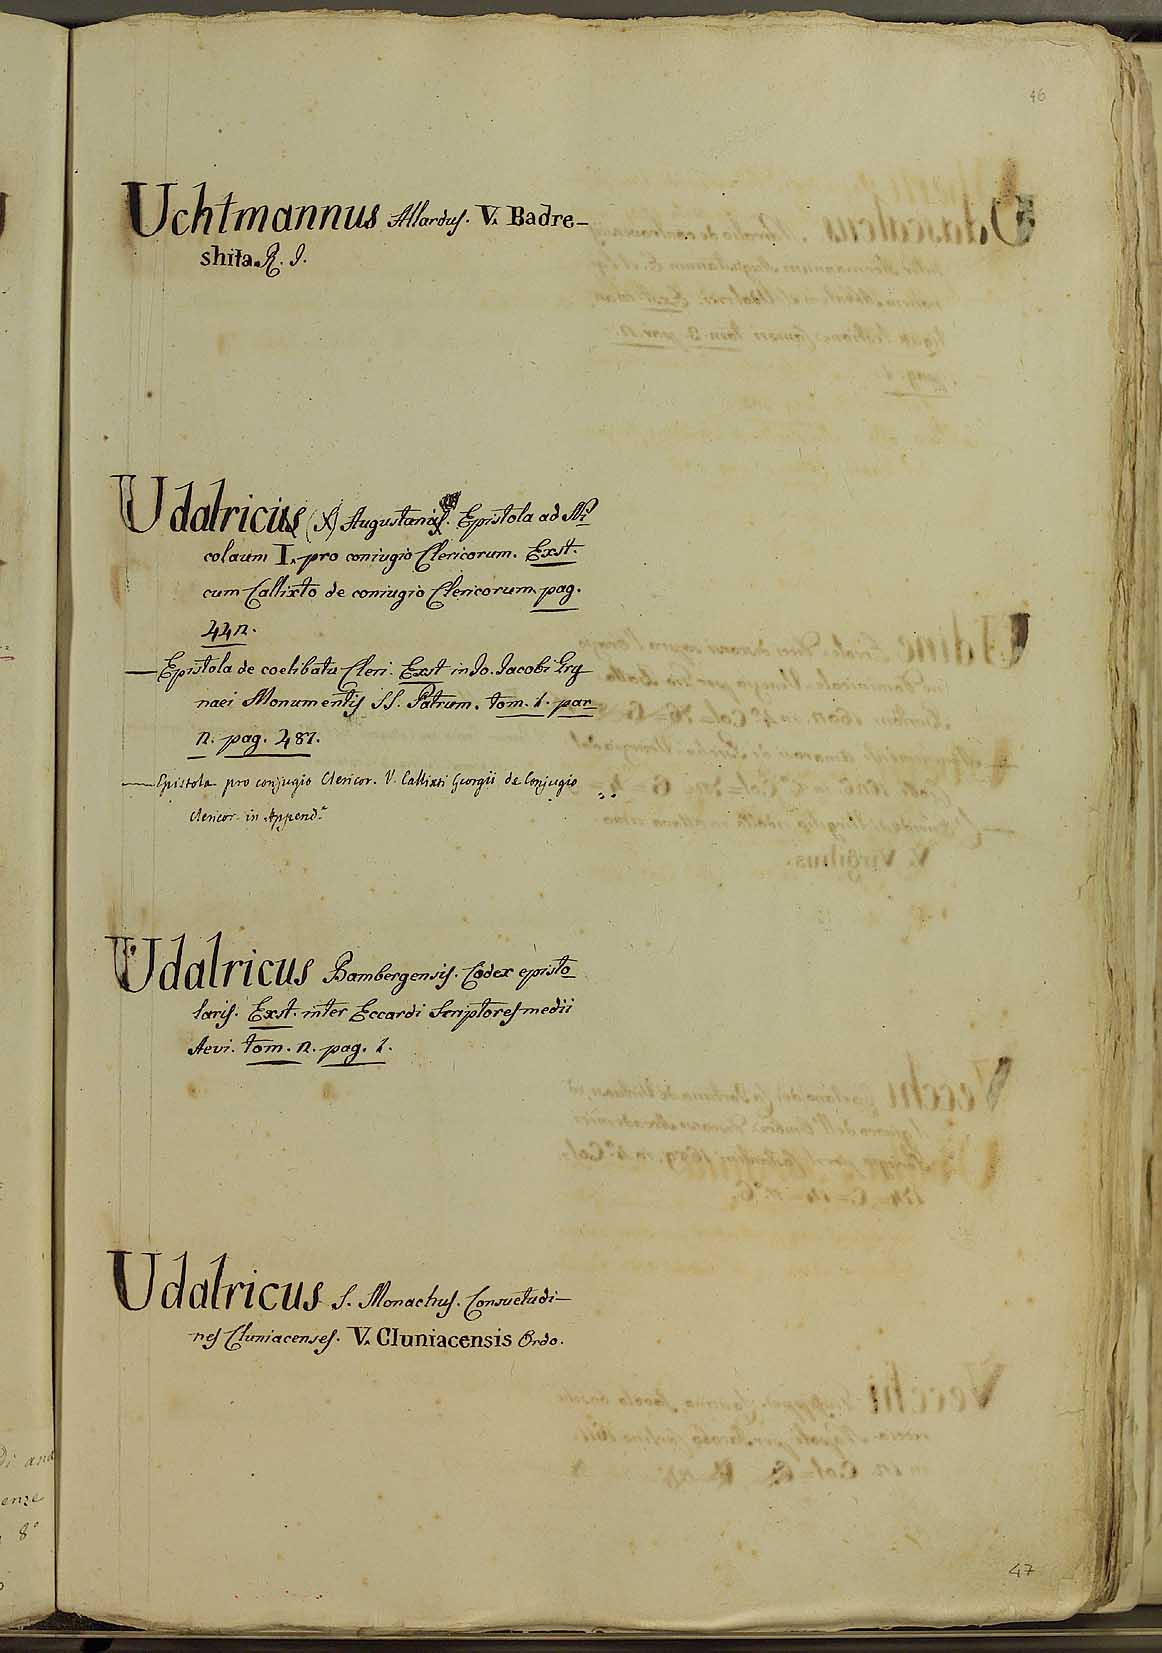 46
Uchtmannus Allardus. V. Badre-
shita R. I.
Udalricus (X) Augustanus. Epistola ad Ni-
colaum I. pro coniugio Clericorum. Exst.
cum Callixto de coniugio Clericorum pag.
44n.
— Epistola de coelibatu Cleri. Exst in Jo. Jacobi Gry
naei Monumentis SS. Patrum. tom. 1. par
n. pag. 481.
— Epistola pro conjugio Clericor. V. Callixti Georgii de Conjugio
Clericor. in Append.
Udalricus Bambergensis. Codex episto
laris. Exst. inter Eccardi Scriptores medii
Aevi. tom. n. pag. 1.
Udalricus S. Monachus. Consuetudi-
nes Cluniacenses. V. Cluniacensis Ordo.
47